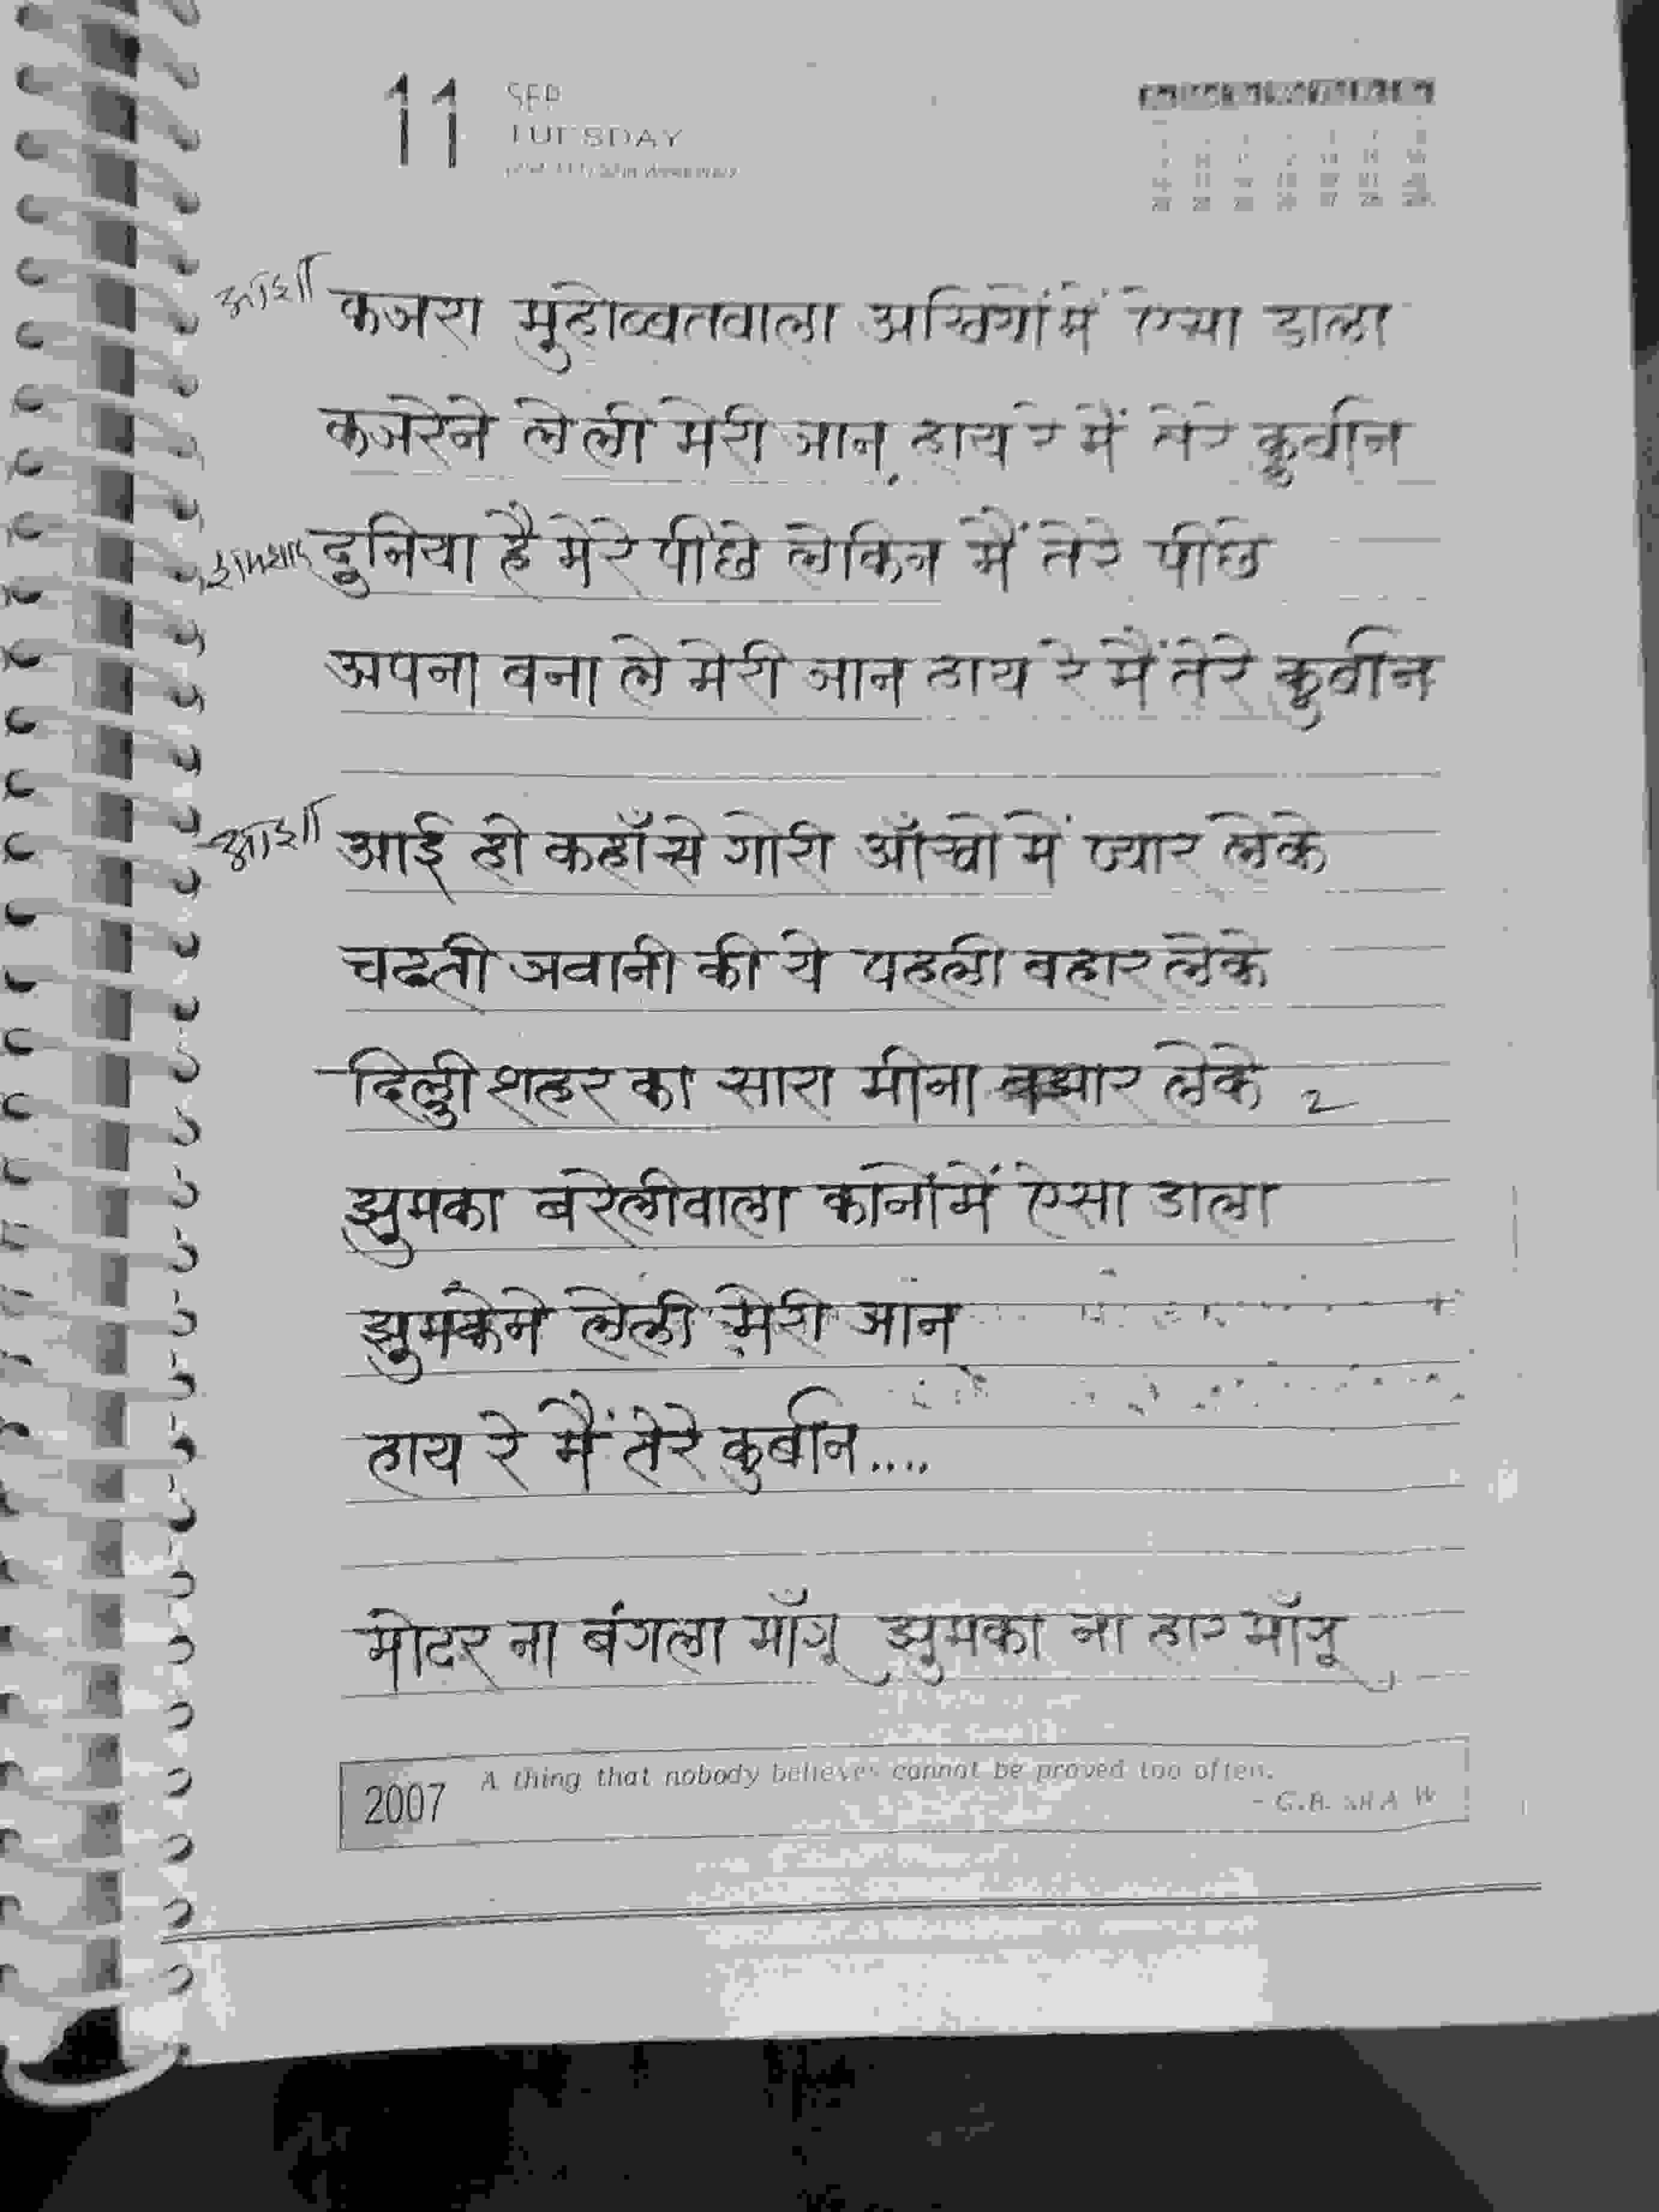 11 SEP
TUESDAY
आशा कजरा मुहोब्बतवाला अखियोंमें ऐसा डाला
कजरेने लेली मेरी जान, हाय रे मैं तेरे कुर्बान
शमशाद दुनिया है मेरे पीछे लेकिन मैं तेरे पीछे
अपना बना ले मेरी जान हाय रे मैं तेरे कुर्बान
आशा आई हो कहाँ से गोरी आँखो में प्यार लेके
चढती जवानी की ये पहली बहार लेके
दिल्ली शहर का सारा मीना बझार लेके 2
झुमका बरेलीवाला कानोंमें ऐसा डाला
झुमकेने लेली मेरी जान
हाय रे मैं तेरे कुर्बान....
मोटर ना बंगला माँगू झुमका ना हार माँगू
2007 A thing that nobody believes cannot be proved too often.
- G.B. SHAW